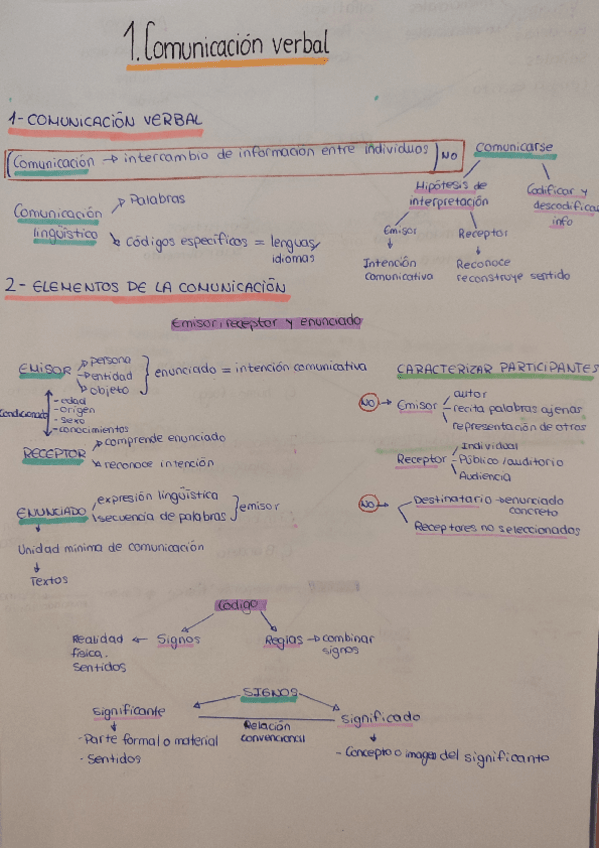 1. Comunicación verbal
1- COMUNICACIÓN VERBAL
Comunicación → intercambio de información entre individuos
NO
Comunicarse
Hipótesis de
interpretación
Codificar y
descodificar
info
Emisor
Receptor
Intención
comunicativa
Reconoce
reconstruye sentido
Comunicación
lingüística
Palabras
códigos específicos = lenguas/
idiomas
2- ELEMENTOS DE LA COMUNICACIÓN
Emisor, receptor y enunciado
EMISOR
persona
entidad
objeto
enunciado = intención comunicativa
Condicionado
- edad
- origen
- sexo
- conocimientos
RECEPTOR
comprende enunciado
reconoce intención
ENUNCIADO
expresión lingüística
secuencia de palabras
emisor
Unidad mínima de comunicación
Textos
CARACTERIZAR PARTICIPANTES
NO → Emisor
autor
recita palabras ajenas
representación de otras
Receptor
Individual
Público/auditorio
Audiencia
NO →
Destinatario → enunciado
concreto
Receptores no seleccionados
Código
Realidad ← Signos
física.
Sentidos
Reglas → combinar
signos
SIGNOS
Significante
Relación
convencional
Significado
- Parte formal o material
- Sentidos
- Concepto o imagen del significante